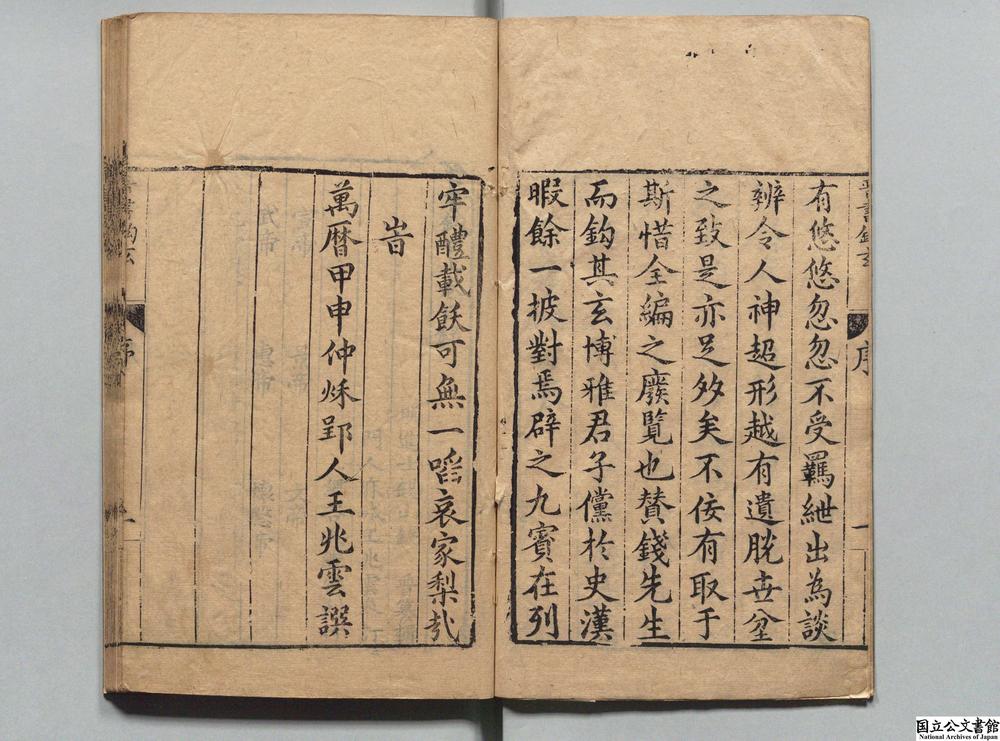 晉書鈎玄
序
一
有悠悠忽忽不受羈紲出為談
辨令人神超形越有遺脫世坌
之致是亦足多矣不佞有取于
斯惜全編之廢覽也賛錢先生
而鈎其玄博雅君子儻於史漢
暇餘一披對焉辟之九賓在列
牢醴載飫可無一啗哀家梨㢤
旹
萬曆甲申仲秌郢人王兆雲譔
序
国立公文書館
National Archives of Japan